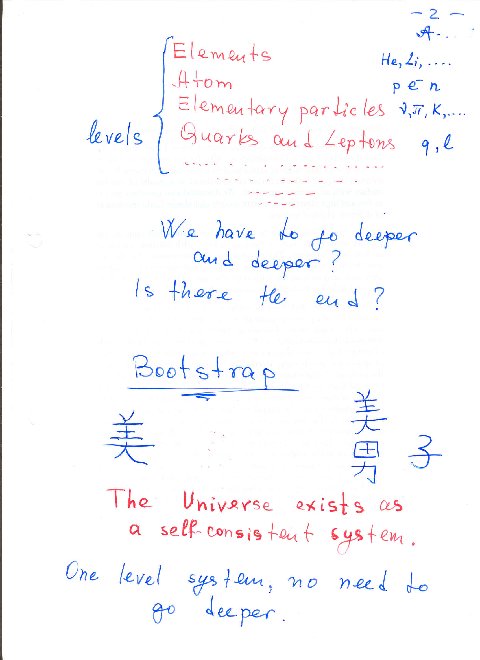 - 2 -
A....
Elements He, Li, ....
Atom p e⁻ n
Elementary particles ν, π, K, ....
levels
Quarks and Leptons q, l
We have to go deeper
and deeper?
Is there the end?
Bootstrap
美 美男 子
The Universe exists as
a self-consistent system.
One level system, no need to
go deeper.